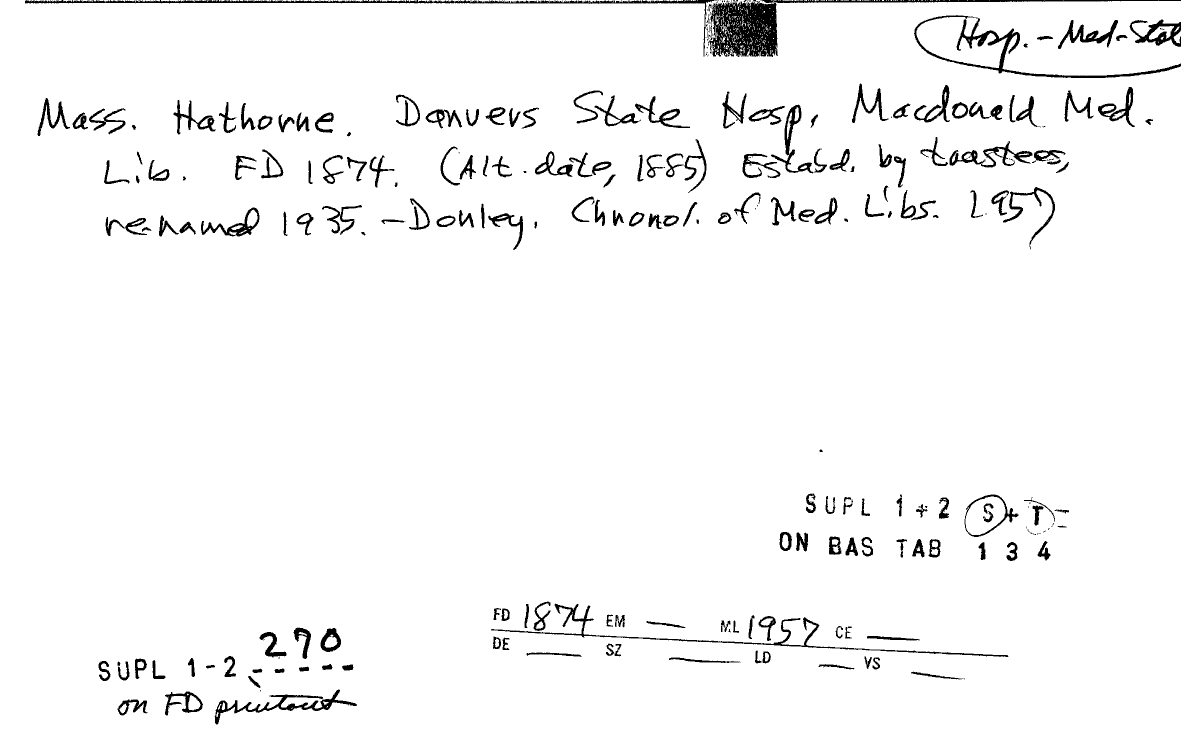 Hosp. - Med - Stat
Mass. Hathorne. Danvers State Hosp, Macdonald Med.
Lib. FD 1874. (Alt. date, 1885) Establd. by trustees,
renamed 1935. - Donley, Chronol. of Med. Libs. 1957
SUPL 1+2 S+T=
ON BAS TAB 1 3 4
FD 1874 EM — ML 1957 CE —
DE — SZ — LD — VS —
270
SUPL 1-2 -----
on FD printout